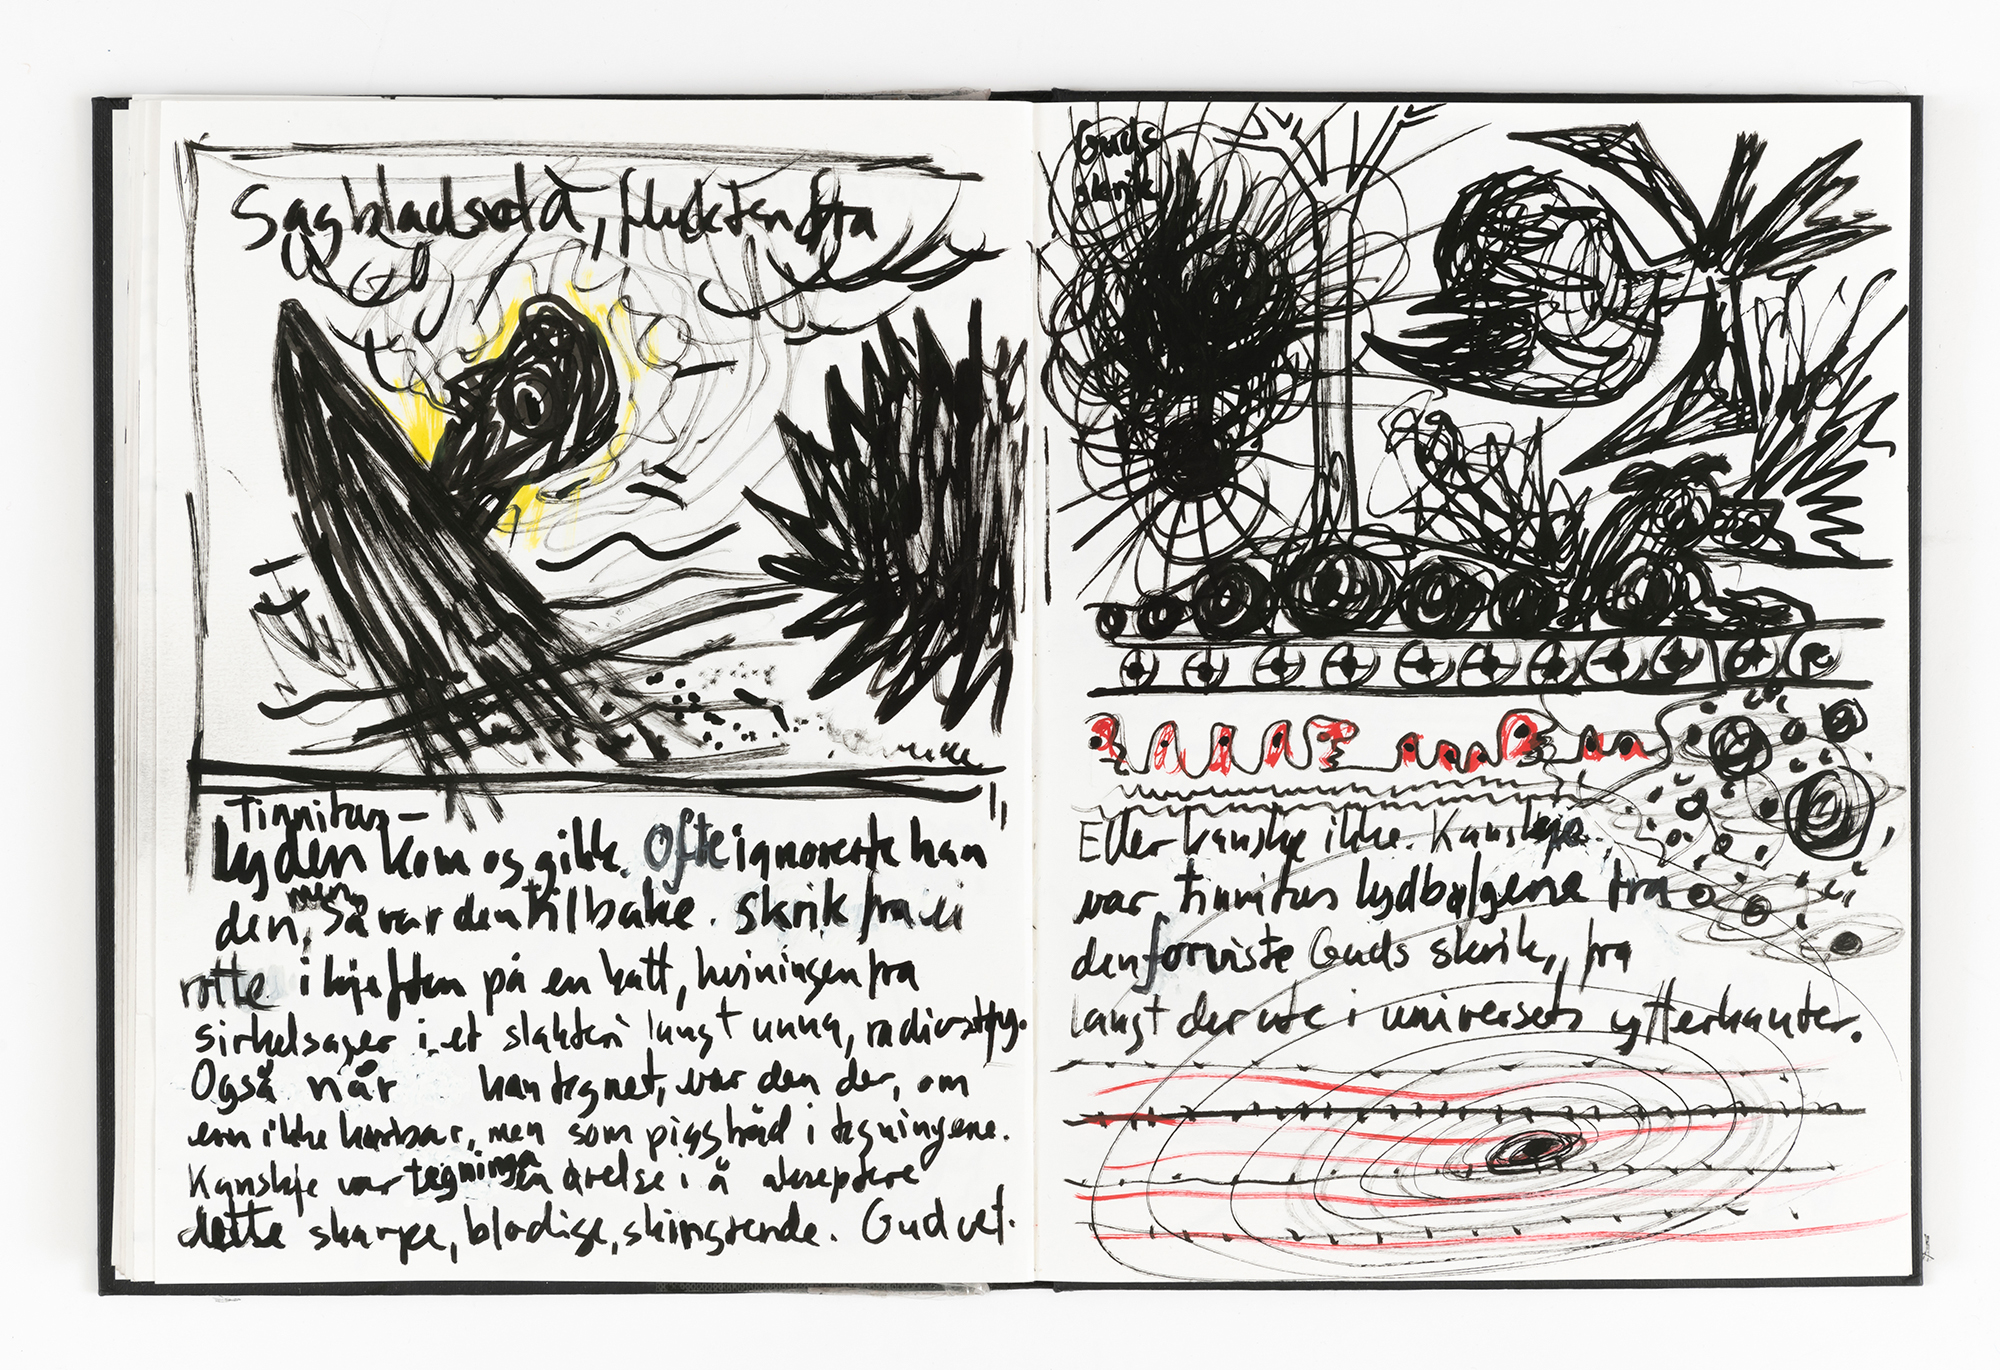 Sagbladsola, flukten fra
Tinnitus–
lyden kom og gikk. Ofte ignorerte han
den, men så var den tilbake. Skrik fra ei
rotte i kjeften på en katt, hviningen fra
sirkelsager i et slakteri langt unna, radiostøy.
Også når han tegnet, var den der, om
enn ikke hørbar, men som piggtråd i tegningene.
Kanskje var tegninga en øvelse i å akseptere
dette skarpe, blodige, skingrende. Gud vet.
Guds
skrik
Eller kanskje ikke. Kanskje
var tinnitus lydbølgene fra
den forviste Guds skrik, fra
langt der ute i universets ytterkanter.